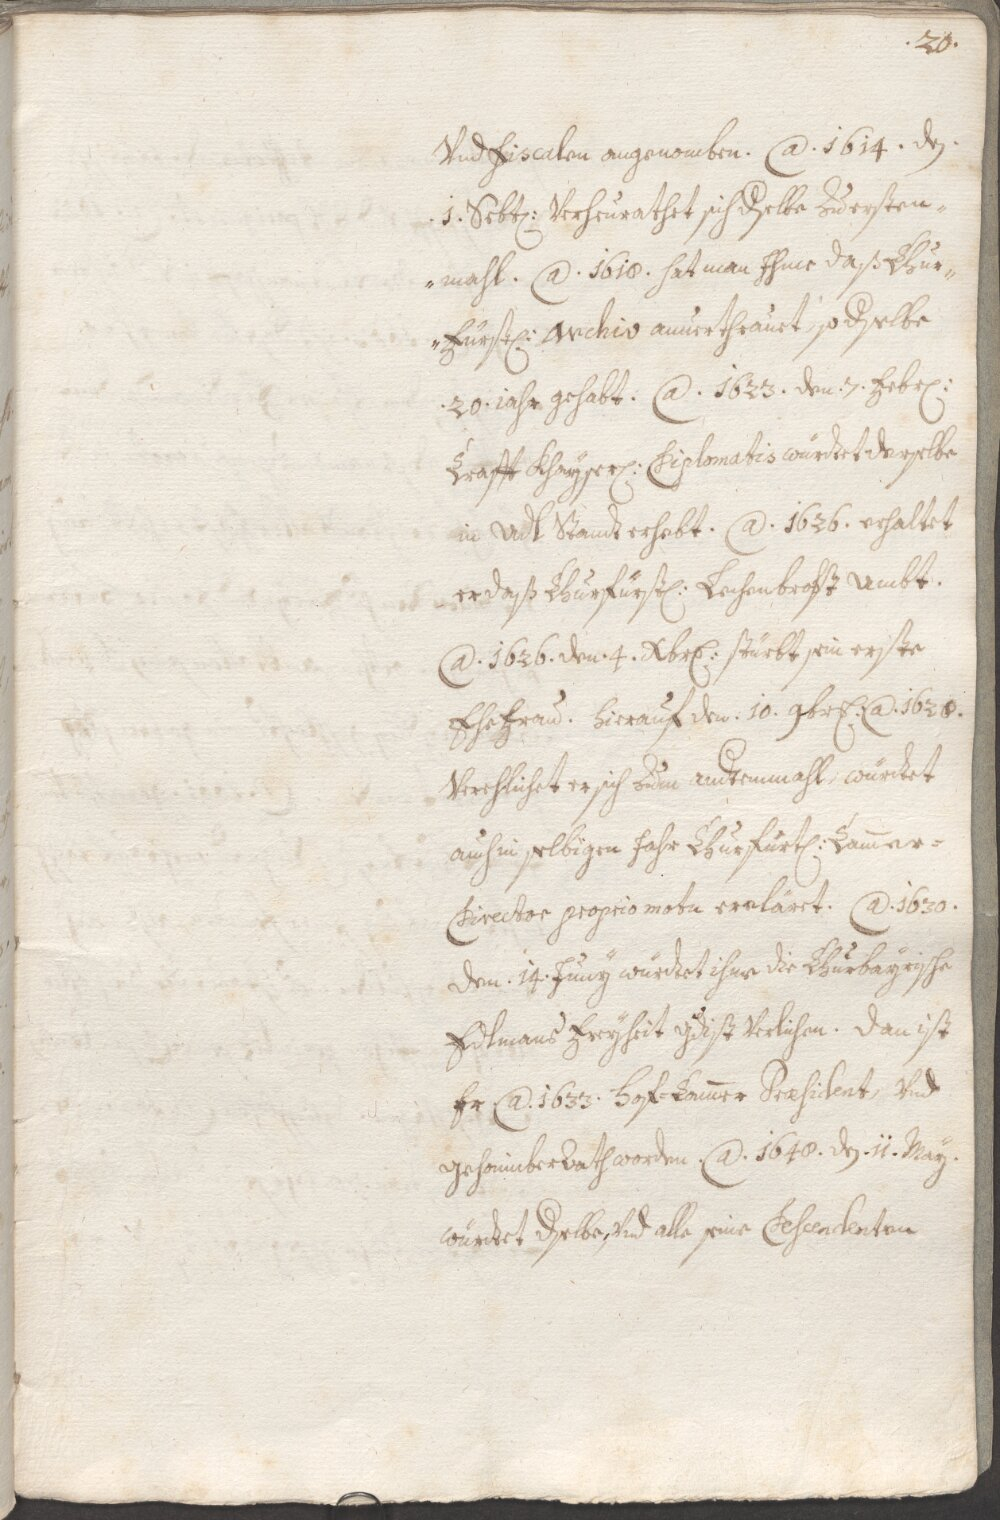 .20.
Vnd Fiscalen angenomben. @. 1614. den
.1. Sebt: Verheurathet sich dselbe Zuersten-
"mahl. @. 1618. hat man Ihme daß Chur-
"Fürstl: Archiv anuerthrauet, so dselbe
.20. iahr gehabt. @. 1623. den .7. Febr:
Crafft Khayserl: Diplomatis würdtet derselbe
in Adl Standt erhebt. @. 1626. erhaltet
er daß Churfürstl: Lechenbrobst Ambt.
@. 1626. den .4. Xbr: stürbt sein erste
Ehefrau. hierauf den .10. 9br: @. 1628.
Verehlichet er sich Zum andtenmahl, würdtet
auch in selbigen Jahr Churfürtl: Cammer-
Director proprio motu erclärt. @. 1630.
den .14. Juny würdtet ihme die Churbayrische
Edlmans Freyheit gdist Verlichen. dan ist
Er @. 1633. Hof-Cammer Præsident, Vnd
gehaimber Rath worden. @. 1648. den .11. May.
würdtet dselbe, Vnd alle seine Descendenten